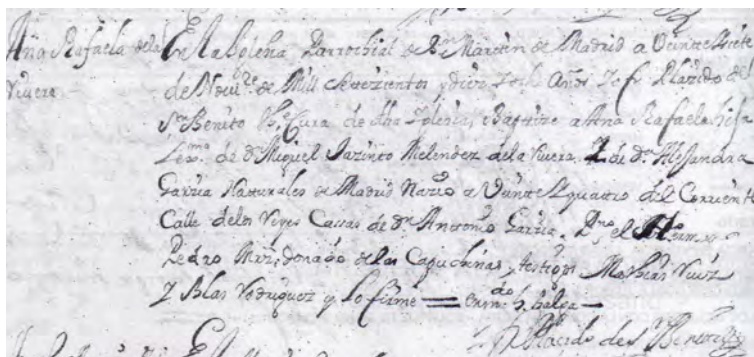 Ana Rafaela de la
Rivera
En la Yglesia Parrochial de Sn Martin de Madrid a Veinte y siete
de Novre de Mill Setezientos y diez y ocho Años Yo fr. Plazido de
Sn Benito The Cura de dha Yglesia, Baptize a Ana Rafaela hija
Lexma de Dn Miguel Jazinto Melendez de la Rivera, Y de Da Alejandra
Garzia Naturales de Madrid Nazio a Veinte y quattro del Corriente
Calle de los Reyes Cassas de Dn Antonio Garzia. Pno el Hermano
Pedro Mrz, donado de las Capuchinas, testigos Mathias Ruiz
Y Blas Rodriguez y lo firme = enmdo Y balga
Fr Plazido de Sn Benito